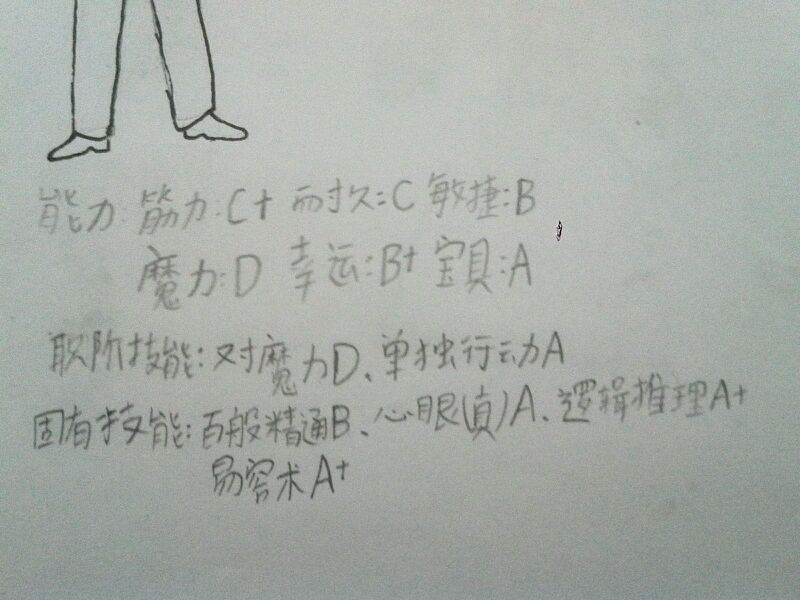 能力:筋力:C+ 耐久:C 敏捷:B
魔力:D 幸运:B+ 宝具:A
职阶技能:对魔力D、单独行动A
固有技能:百般精通B、心眼(真)A、逻辑推理A+
易容术A+